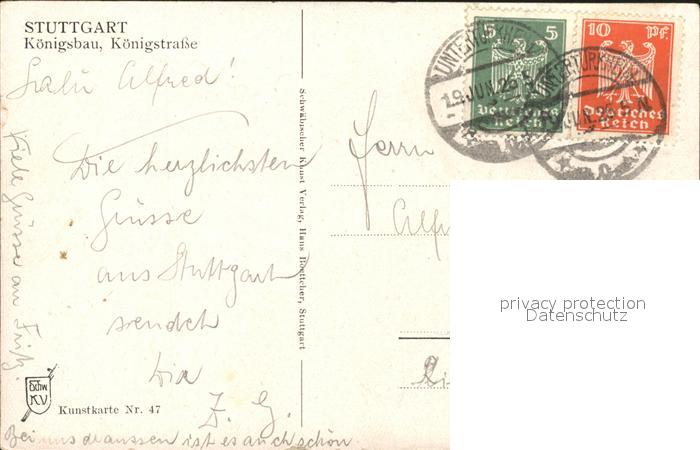 STUTTGART
Königsbau, Königstraße
Alfred!
Die herzlichsten
Grüsse
aus Stuttgart
sendet
Dir
F. G.
Bei uns draussen ist es auch schön.
Viele Grüsse an Fritz.
Schw
K.V
Kunstkarte Nr. 47
Schwäbischer Kunst Verlag, Hans Boettcher, Stuttgart
Herrn
Alf
5 5
Deutsches
Reich
10 Pf.
Deutsches
Reich
UNTERTÜRKHEIM
19.JUN.26
UNTERTÜRKHEIM
JUN.26
privacy protection
Datenschutz